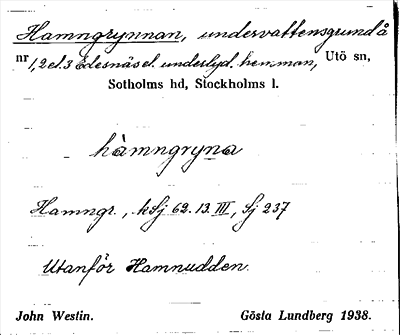 Hamngrynnan, undervattensgrund å
nr 1, 2 el. 3 Edesnäs el. underlyd. hemman, Utö sn,
Sotholms hd, Stockholms l.
hàmngryna
Hamngr., kSj 62. 13. III, Sj 237
Utanför Hamnudden.
John Westin. Gösta Lundberg 1938.